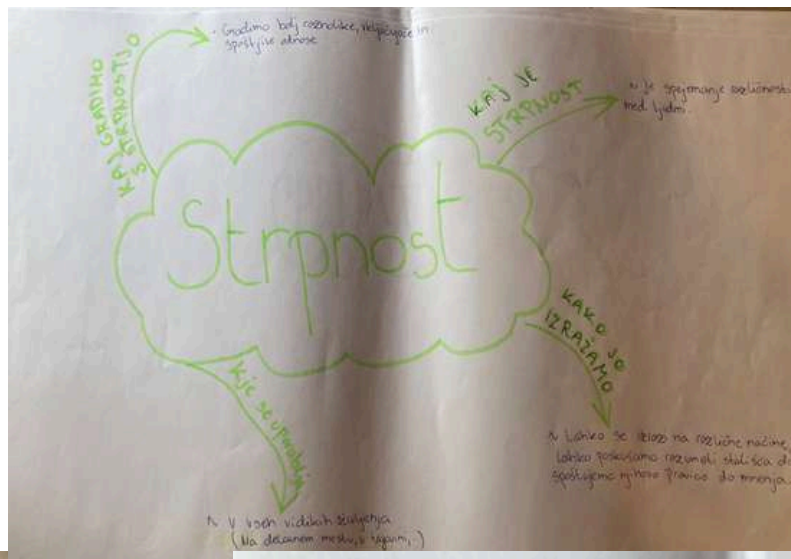 KAJ GRADIMO
S STRPNOSTJO
- Gradimo bolj raznolike, vključujoče in
spoštljive odnose
KAJ JE
STRPNOST
~ je sprejemanje različnosti
med ljudmi.
Strpnost
KAKO JO
IZRAŽAMO
~ Lahko se izrazi na različne načine,
lahko poskušamo razumeti stališča
spoštujemo njihovo pravico do mnenja.
Kje se uporablja
~ V vseh vidikih življenja
(Na delovnem mestu, v